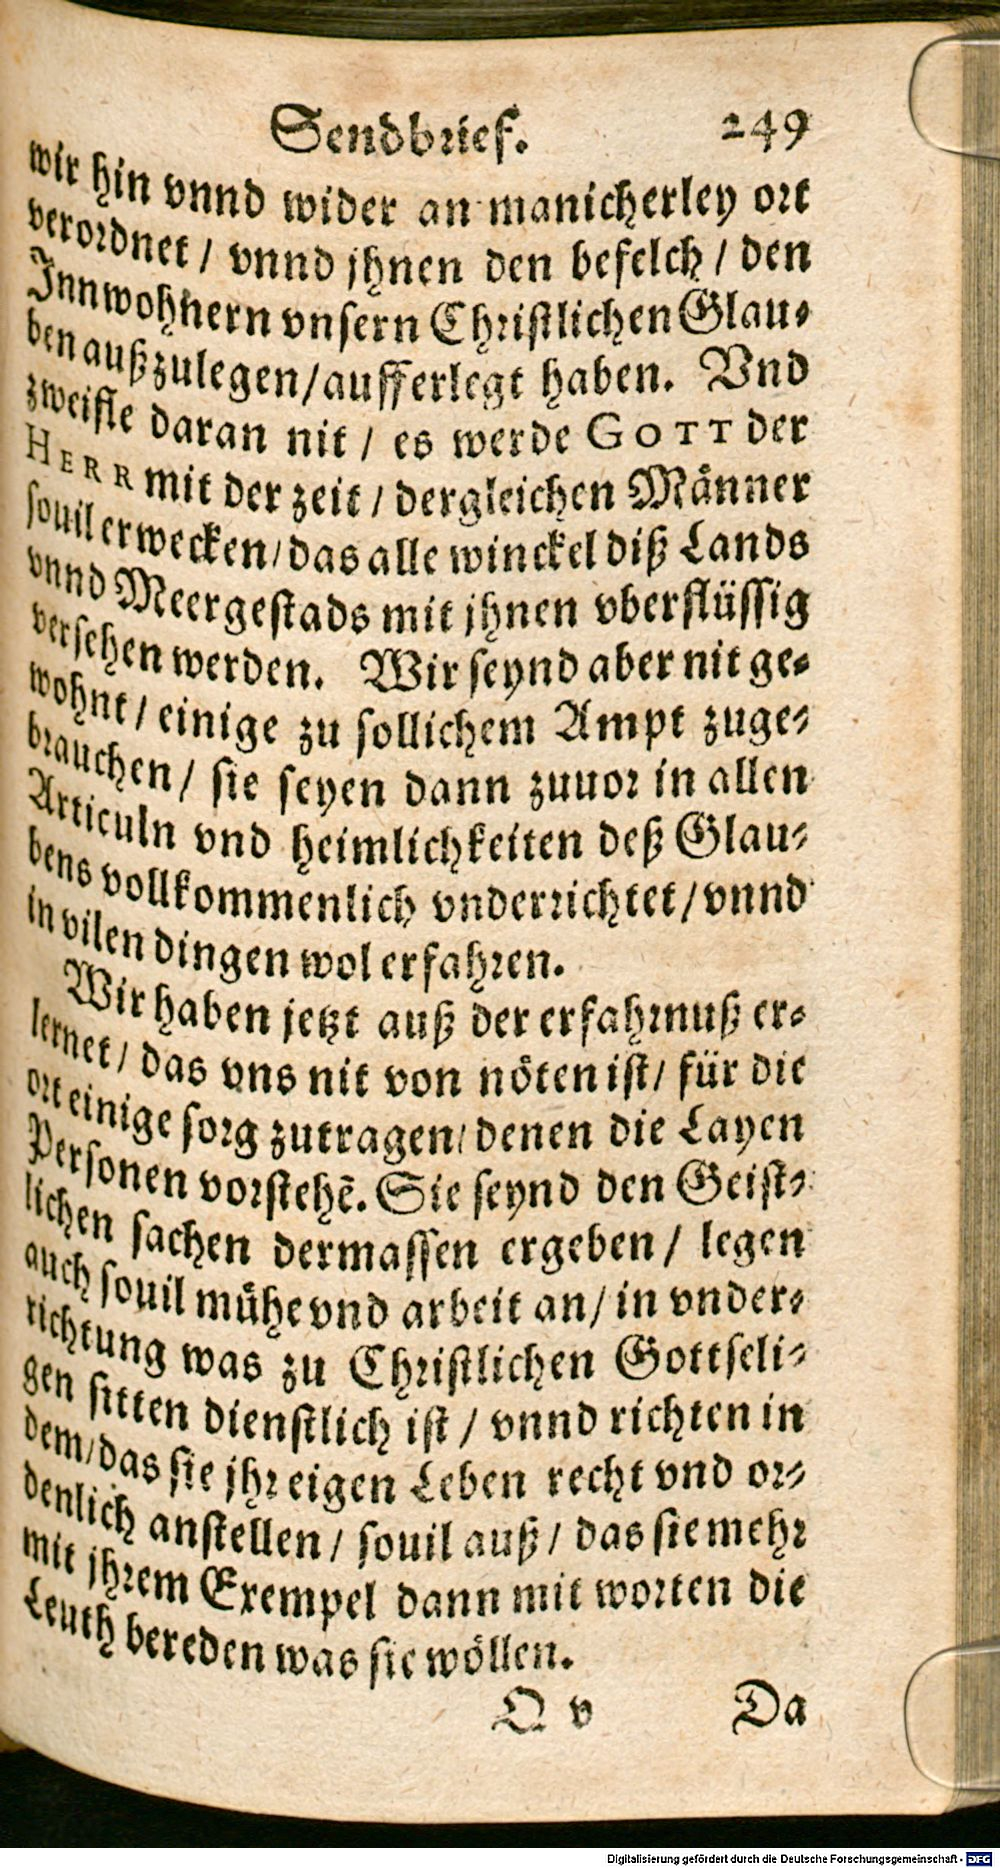 Sendbrief. 249
wir hin vnnd wider an manicherley ort
verordnet / vnnd jhnen den befelch / den
Innwohnern vnsern Christlichen Glau-
ben außzulegen / aufferlegt haben. Vnd
zweifle daran nit / es werde GOTT der
HERR mit der zeit / dergleichen Männer
souil erwecken / das alle winckel diß Lands
vnnd Meergestads mit jhnen vberflüssig
versehen werden. Wir seynd aber nit ge-
wohnt / einige zu sollichem Ampt zuge-
brauchen / sie seyen dann zuuor in allen
Articuln vnd heimlichkeiten deß Glau-
bens vollkommenlich vnderrichtet / vnnd
in vilen dingen wol erfahren.
Wir haben jetzt auß der erfahrnuß er-
lernet / das vns nit von nöten ist / für die
ort einige sorg zutragen / denen die Layen
Personen vorstehẽ. Sie seynd den Geist-
lichen sachen dermassen ergeben / legen
auch souil mühe vnd arbeit an / in vnder-
richtung was zu Christlichen Gottseli-
gen sitten dienstlich ist / vnnd richten in
dem / das sie jhr eigen Leben recht vnd or-
denlich anstellen / souil auß / das sie mehr
mit jhrem Exempel dann mit worten die
Leuth bereden was sie wöllen.
Q v Da
Digitalisierung gefördert durch die Deutsche Forschungsgemeinschaft - DFG